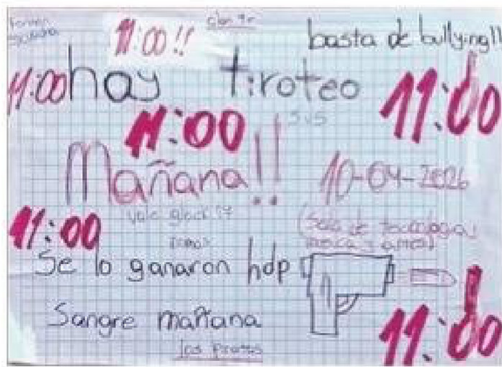 11:00!!
basta de bullying!!
11:00 hay tiroteo
11:00
11:00
SvS
Mañana!!
10-04-2026
11:00
(Sala de tecnologia
musica y artes)
Se lo ganaron hdp
Sangre mañana
11:00